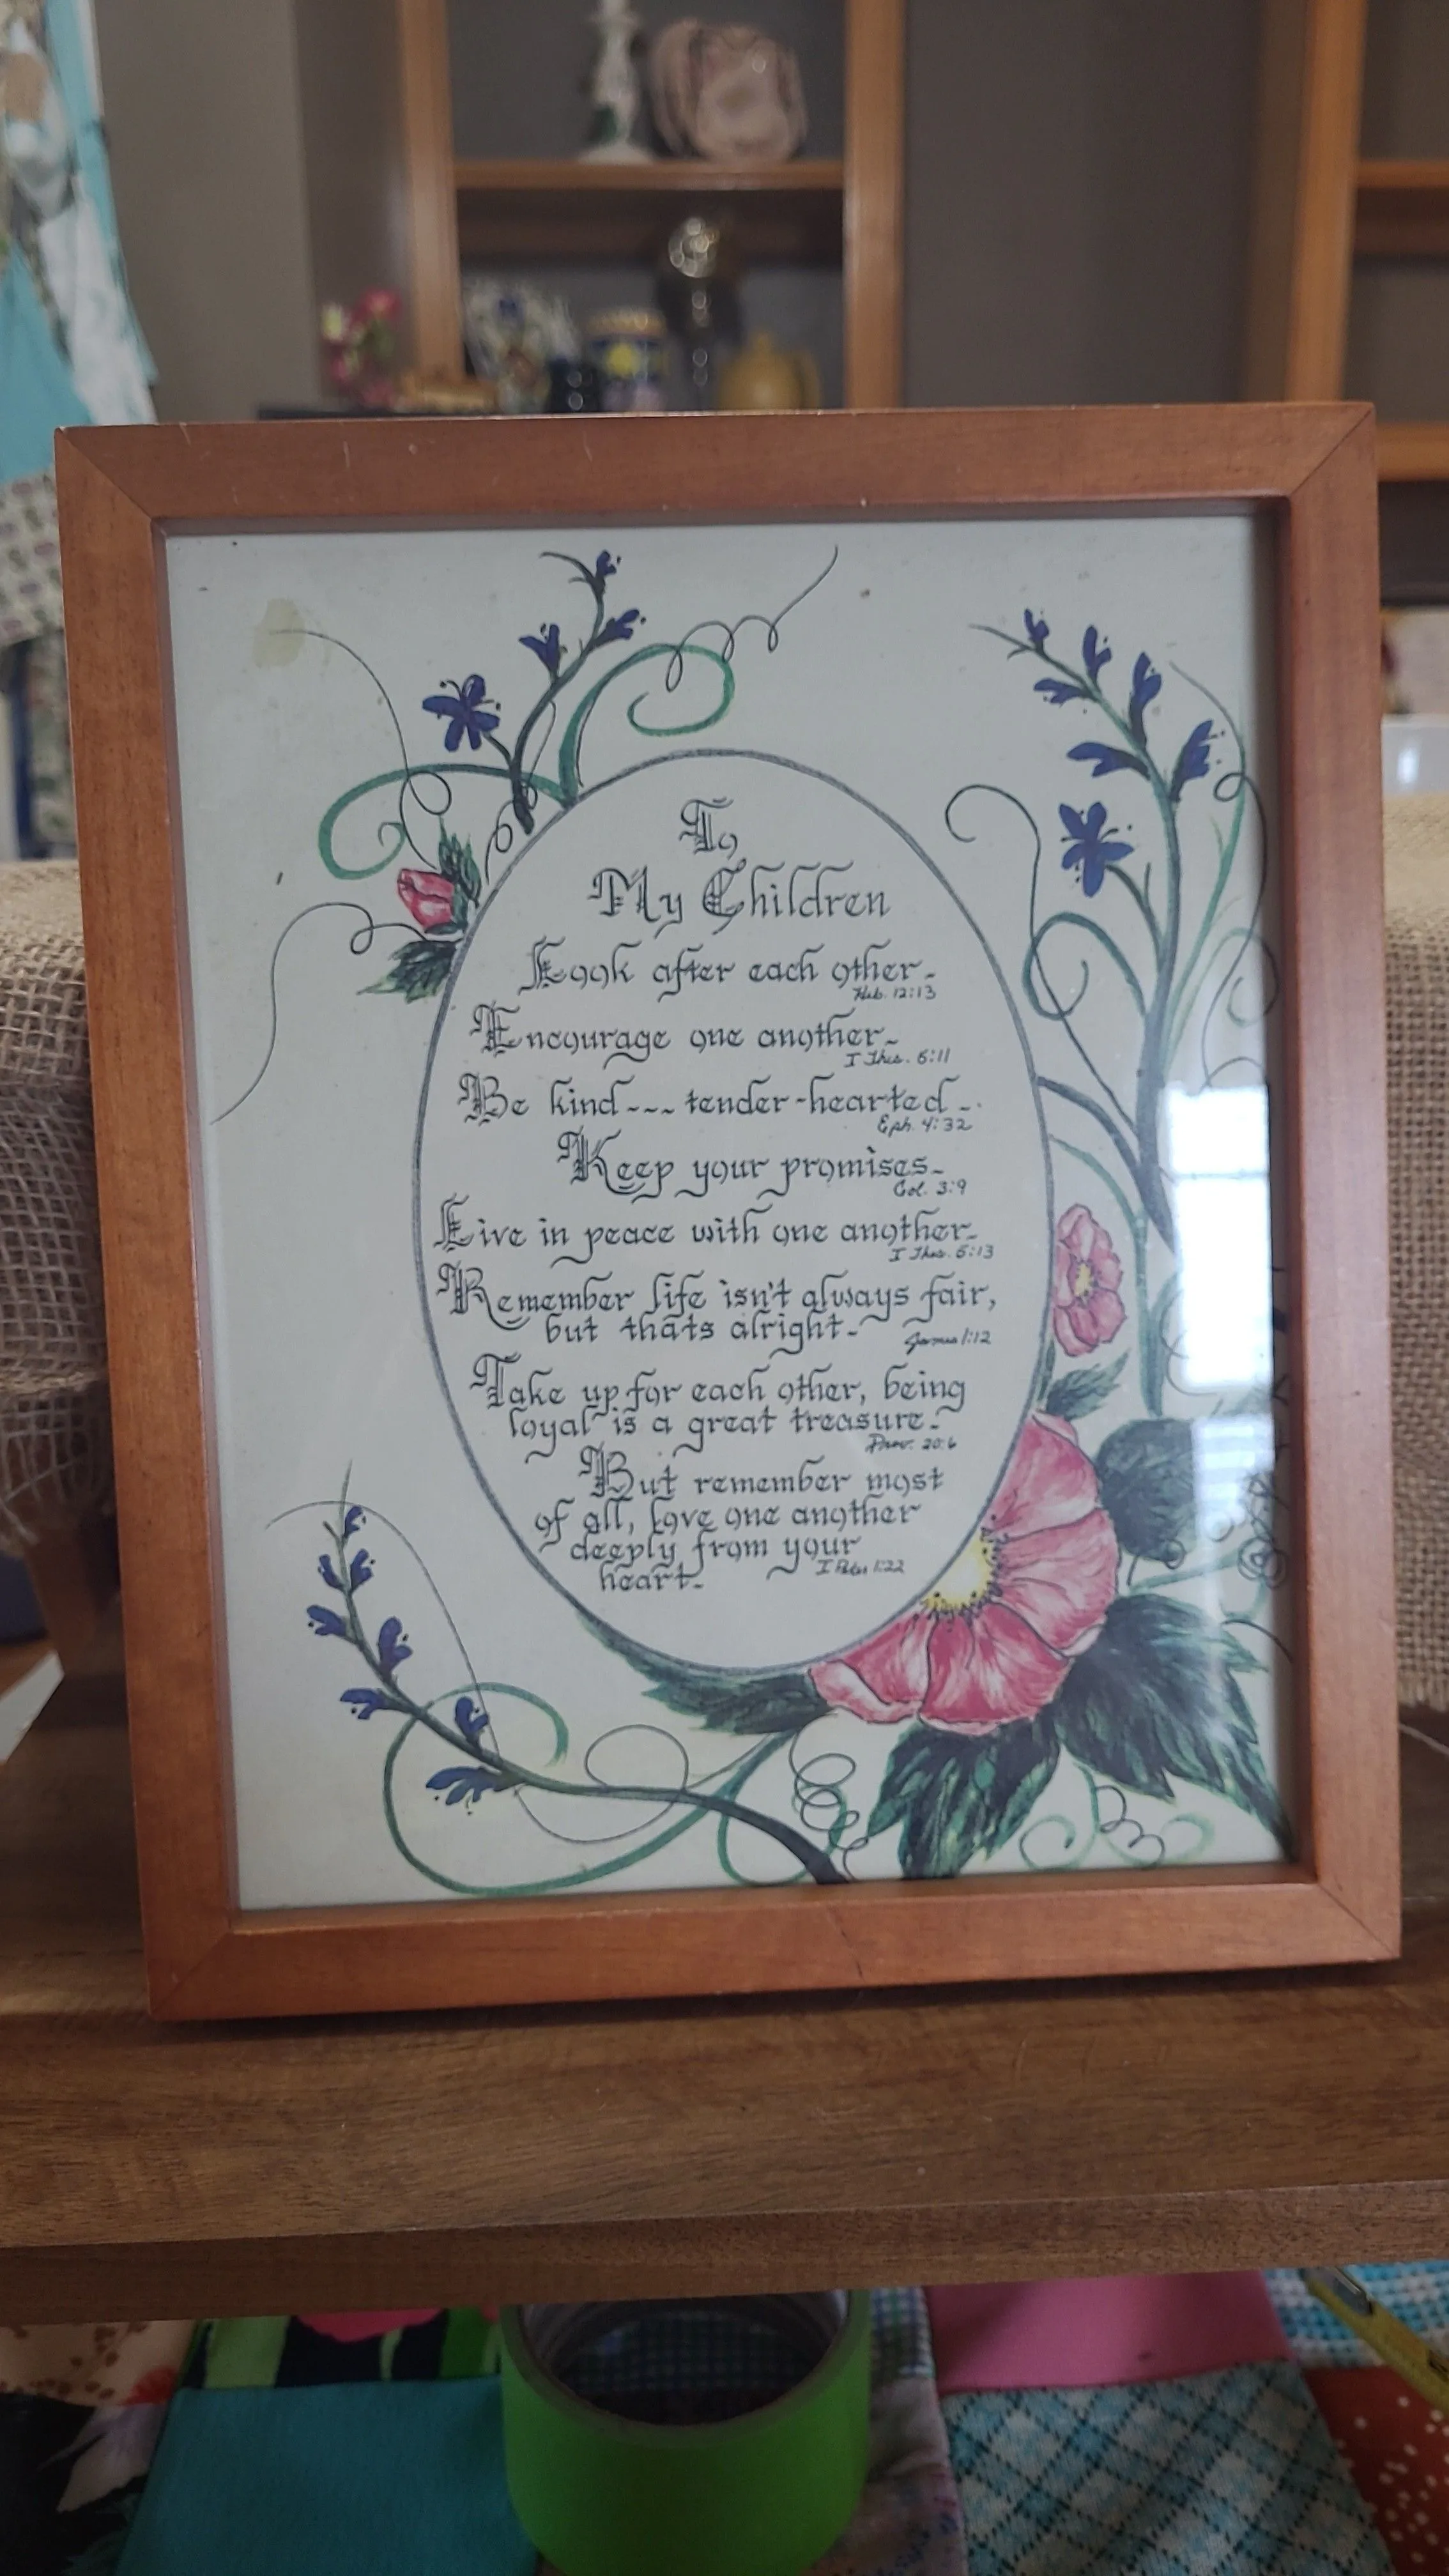 To
My Children
Look after each other-
Heb. 12:13
Encourage one another-
I Thes. 5:11
Be kind--- tender-hearted-
Eph. 4:32
Keep your promises-
Col. 3:9
Live in peace with one another-
I Thes. 5:13
Remember life isn't always fair,
but thats alright-
James 1:12
Take up for each other, being
loyal is a great treasure-
Prov. 20:6
But remember most
of all, love one another
deeply from your
I Peter 1:22
heart-